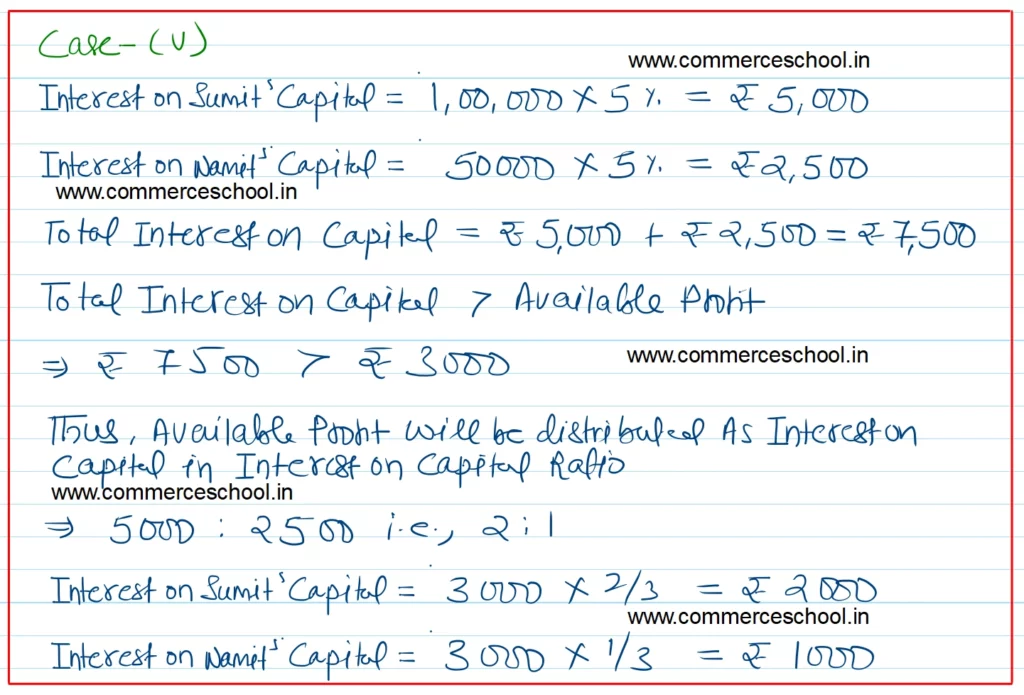 Case-(V)
www.commerceschool.in
Interest on Sumit's Capital = 1,00,000 × 5 % = ₹ 5,000
Interest on Namit's Capital = 50000 × 5 % = ₹ 2,500
www.commerceschool.in
Total Interest on Capital = ₹ 5,000 + ₹ 2,500 = ₹ 7,500
Total Interest on Capital > Available Profit
⇒ ₹ 7500 > ₹ 3000
www.commerceschool.in
Thus, Available Profit will be distributed As Interest on
Capital in Interest on Capital Ratio
www.commerceschool.in
⇒ 5000 : 2500 i.e., 2:1
Interest on Sumit's Capital = 3000 × 2/3 = ₹ 2000
www.commerceschool.in
Interest on Namit's Capital = 3000 × 1/3 = ₹ 1000